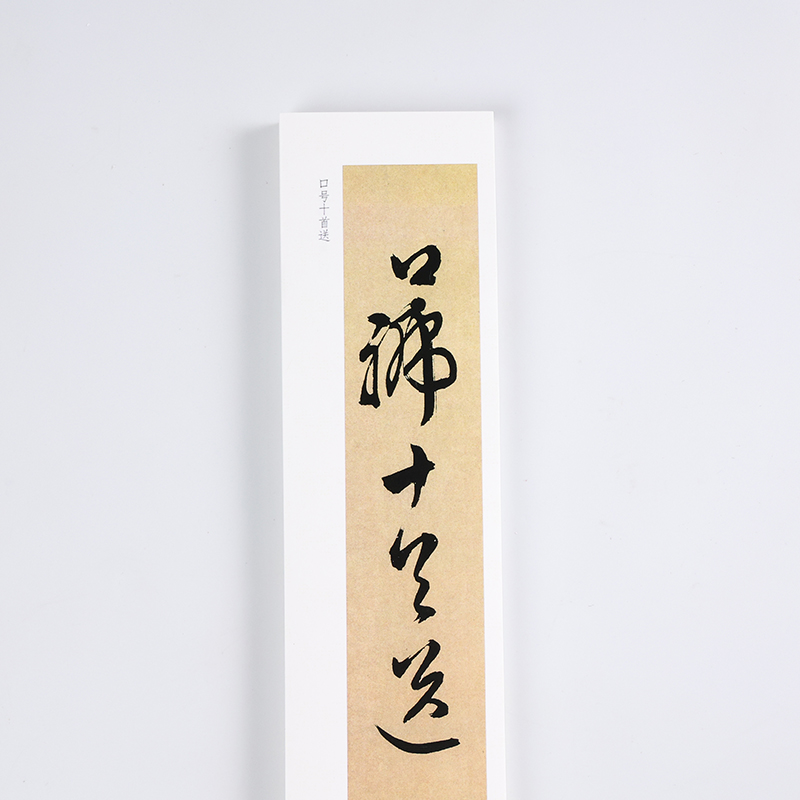 口号十首送
口號十首送